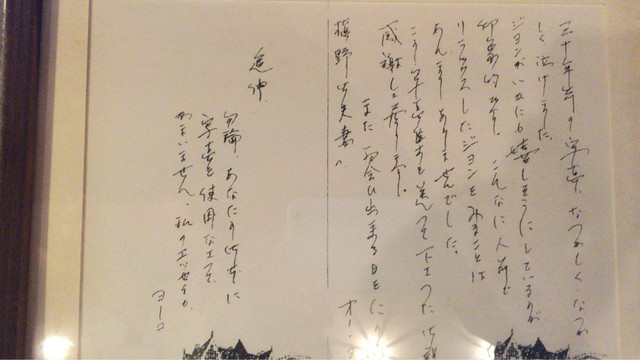 三十年前の写真、なつかしく、なつか
しく泣けました。
ジョンがいかにも嬉しそうにしているのが
印象的です。こんなに人前で
リラックスしたジョンをみることは
あんまりありませんでした。
こう写真集を送って下さった御
感謝して居ります。
また お会い出来る日を
オー
御夫妻へ
追伸
勿論、あなたの御本に
写真を使用なさって
かまいません。私のエッセイも。
ヨーコ